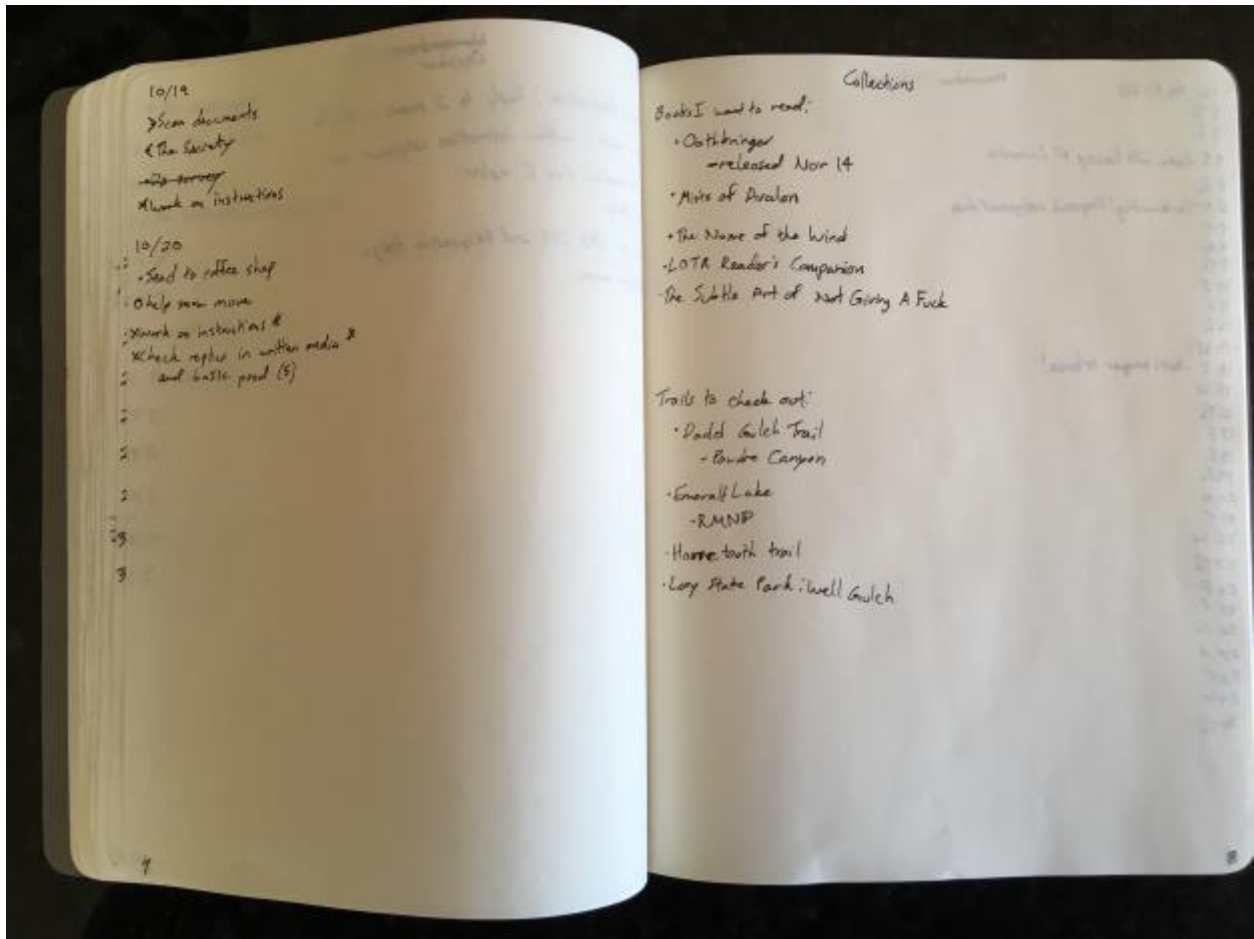 10/19
>Scan documents
<The Society
•Do survey
×work on instructions
10/20
•Send to coffee shop
O help mom move
×work on instructions *
×Check replies in written media *
and basic prod (5)
2
2
2
2
3
3
4
Collections
Books I want to read:
•Oathbringer
-released Nov 14
•Mists of Avalon
•The Name of the Wind
•LOTR Reader's Companion
•The Subtle Art of Not Giving A Fuck
Trails to check out:
•Dadd Gulch Trail
-Poudre Canyon
•Emerald Lake
-RMNP
•Horsetooth trail
•Lory State Park: Well Gulch